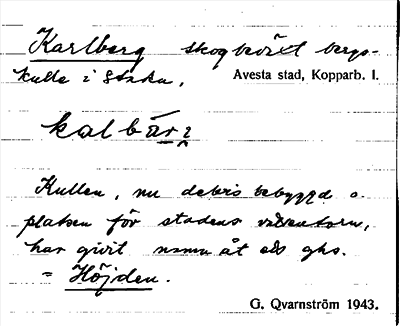 Karlberg skogbeväxt bergs-
kulle i Staka,
Avesta stad, Kopparb. l.
kalbär
Kullen, nu delvis bebyggd o.
platsen för stadens vattentorn,
har givit namn åt ghs.
= Höjden.
G. Qvarnström 1943.